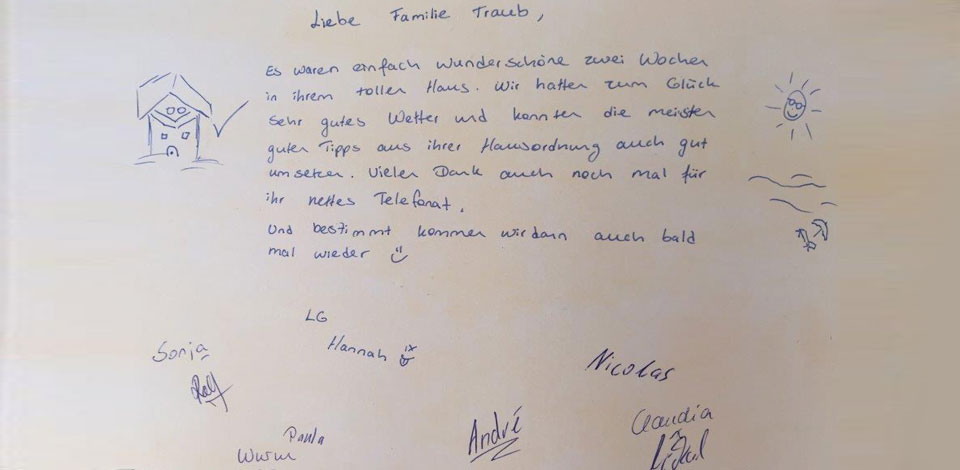 Liebe Familie Traub,
Es waren einfach wunderschöne zwei Wochen
in ihrem tollen Haus. Wir hatten zum Glück
sehr gutes Wetter und konnten die meisten
guten Tipps aus ihrer Hausordnung auch gut
umsetzen. Vielen Dank auch noch mal für
ihr nettes Telefonat.
Und bestimmt kommen wir dann auch bald
mal wieder
LG
Hannah
Sonja
Ralf
Nicolas
Claudia
André
Paula
Wurm